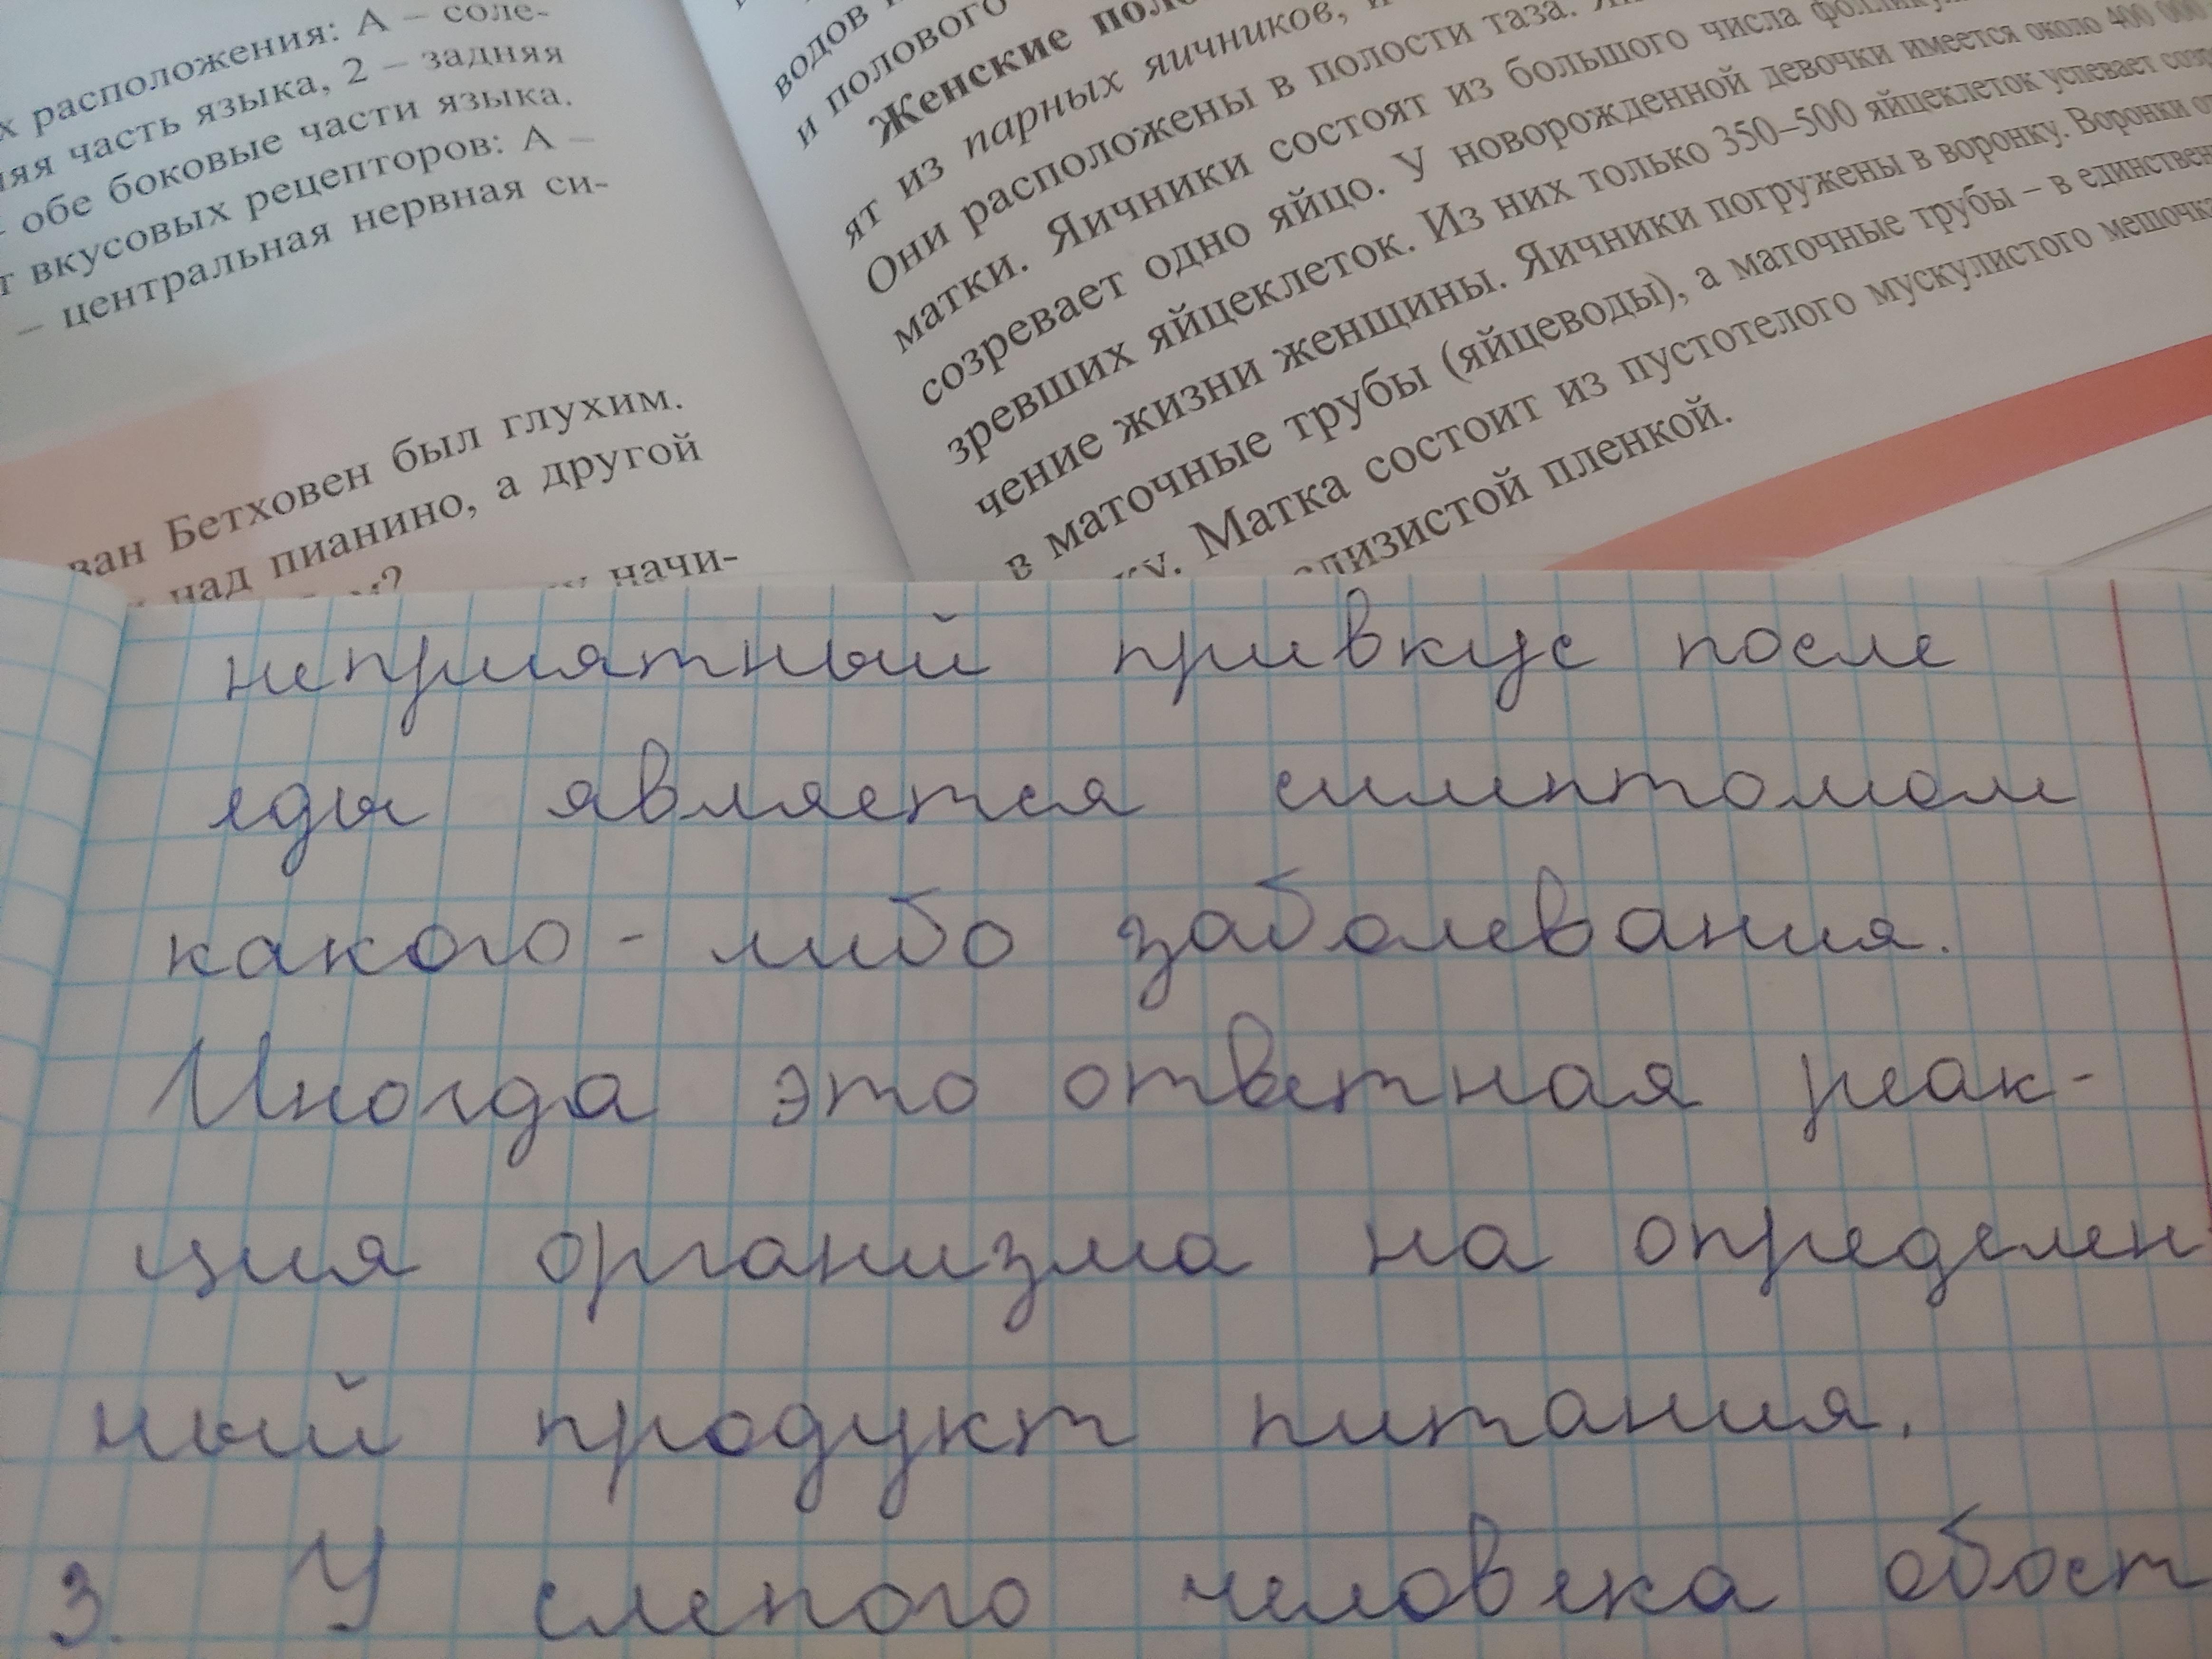 расположения: А – соле-
часть языка, 2 – задняя
обе боковые части языка.
вкусовых рецепторов: А –
– центральная нервная си-
Бетховен был глухим.
над пианино, а другой
начи-
и полового
Женские
ят из парных яичников,
Они расположены в полости таза.
матки. Яичники состоят из большого числа
созревает одно яйцо. У новорожденной девочки имеется около 400 000
зревших яйцеклеток. Из них только 350–500 яйцеклеток успевает
чение жизни женщины. Яичники погружены в воронку. Воронки
в маточные трубы (яйцеводы), а маточные трубы – в
Матка состоит из пустотелого мускулистого
пленкой.
неприятный привкус после
еды является симптомом
какого-либо заболевания.
Иногда это ответная реак-
ция организма на определен
ный продукт питания.
3. У слепого человека обост